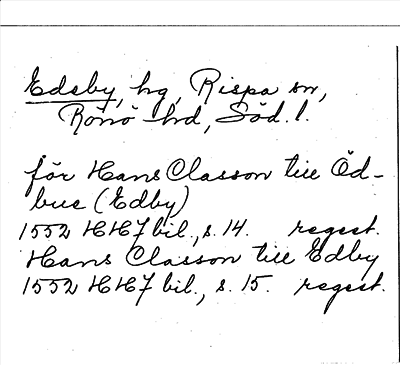 Edeby, hg, Rispa sn,
Rönö hd, Söd. l.
för Hans Classon till Öd-
bue (Edby)
1552 HH7 bil., s. 14. regest.
Hans Classon till Edby
1552 HH7 bil., s. 15. regest.